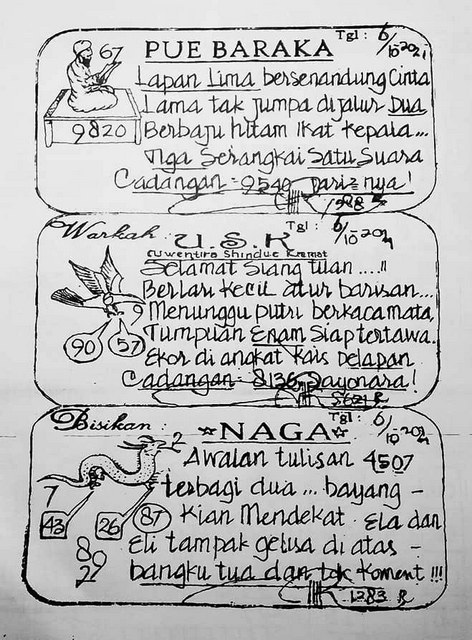 Tgl : 6/10-2021
67
PUE BARAKA
Lapan Lima bersenandung Cinta
Lama tak jumpa di jalur Dua
9820
Berbaju hitam Ikat kepala...
Tiga Serangkai Satu Suara
Cadangan = 9540
nya!
Tgl : 6/10-2021
Warkah :
U.S.K
Selamat Siang tuan ....!!
Berlari kecil atur barisan...
9
Menunggu putri berkacamata,
90
57
Tumpuan Enam Siap tertawa.
Ekor di angkat kais Delapan
Cadangan = 8136 Sayonara!
Tgl : 6/10-2021
Bisikan :
☆NAGA☆
2
Awalan tulisan 4507
7
terbagi dua ... bayang -
43
26
87
Kian Mendekat . Ela dan
89
Eli tampak gelisa di atas -
29
bangku tua dan tak koment !!!
1283 R